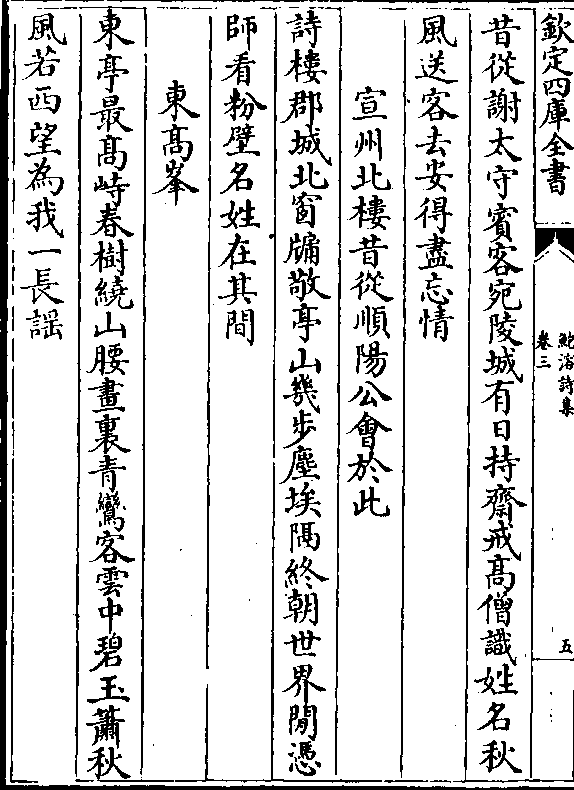 欽定四庫全書
鮑溶詩集
卷三
五
昔從謝太守賓客宛陵城有日持齋戒高僧識姓名秋
風送客去安得盡忘情
宣州北樓昔從順陽公會於此
詩樓郡城北窗牖敬亭山幾步塵埃隔終朝世界閒憑
師看粉壁名姓在其間
東髙峯
東亭最髙峙春樹繞山腰畫裏青鸞客雲中碧玉簫秋
風若西望為我一長謡